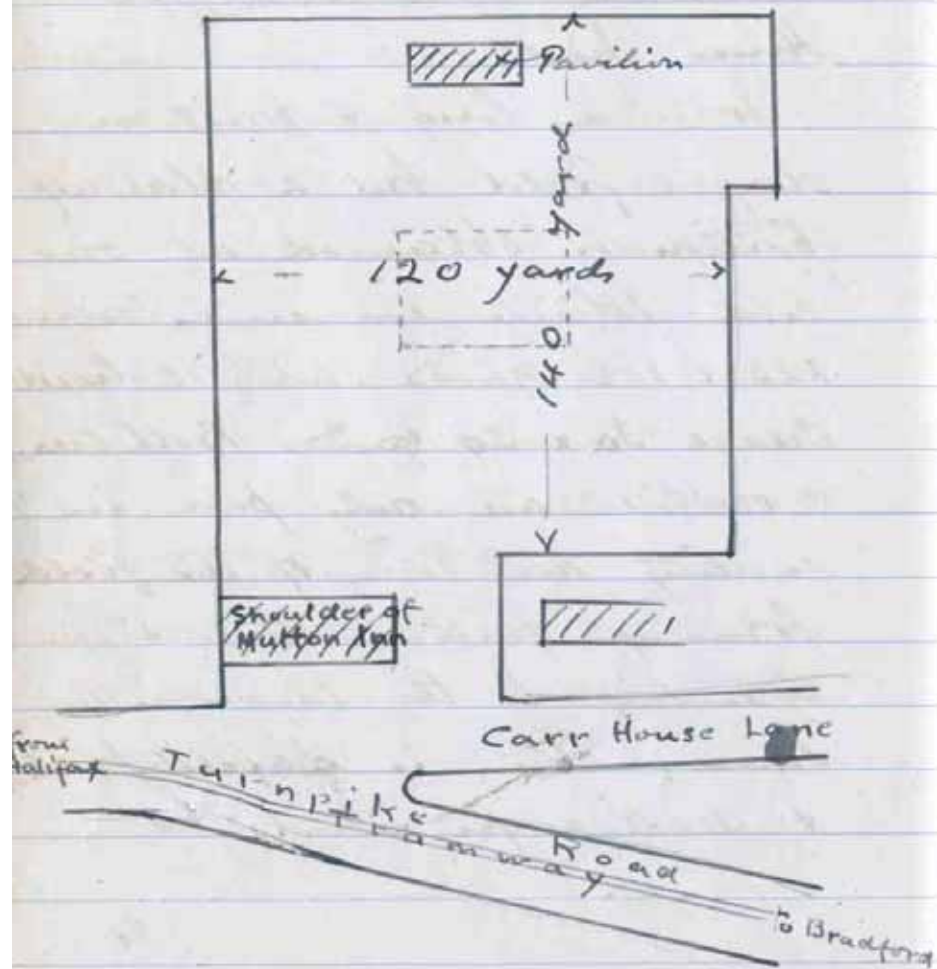 Pavilion
140 yards
120 yards
Shoulder of
Mutton Inn
Carr House Lane
from
Halifax
Turnpike Road
Tramway
to Bradford